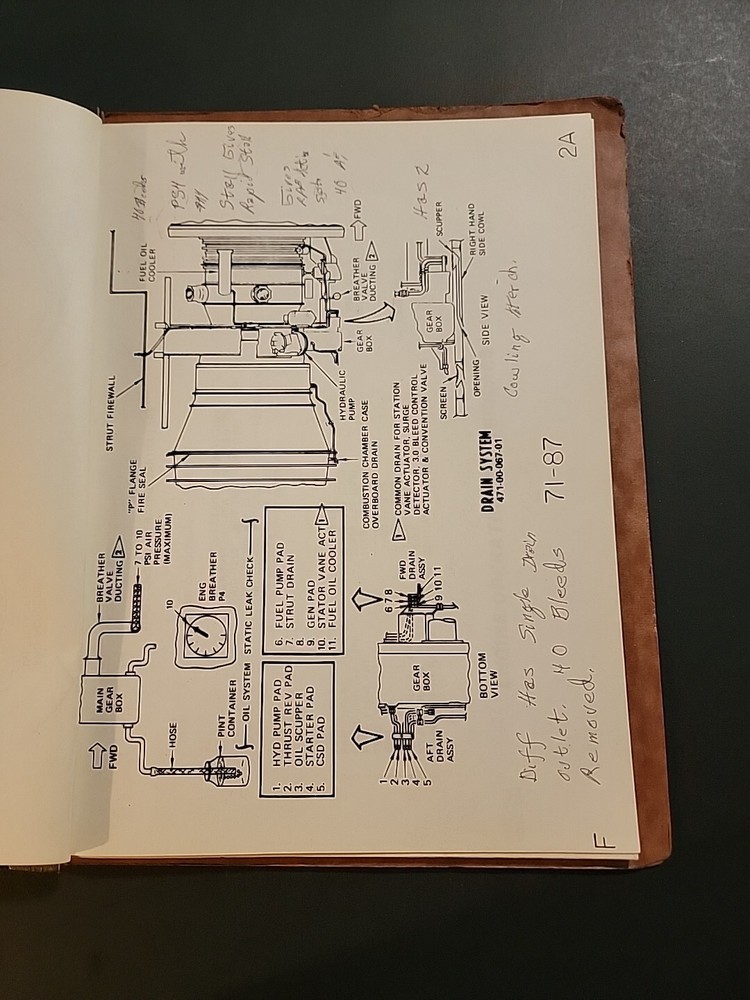 MAIN
GEAR
BOX
FWD
HOSE
PINT
CONTAINER
BREATHER
VALVE
DUCTING 2
7 TO 10
PSI AIR
PRESSURE
(MAXIMUM)
10
ENG
BREATHER
P4
OIL SYSTEM STATIC LEAK CHECK
1. HYD PUMP PAD
2. THRUST REV PAD
3. OIL SCUPPER
4. STARTER PAD
5. CSD PAD
6. FUEL PUMP PAD
7. STRUT DRAIN
8.
9. GEN PAD
10. STATOR VANE ACT 1
11. FUEL OIL COOLER
1
2
3
4
5
AFT
DRAIN
ASSY
GEAR
BOX
6 7 8
9 10 11
FWD
DRAIN
ASSY
BOTTOM
VIEW
STRUT FIREWALL
"P" FLANGE
FIRE SEAL
FUEL OIL
COOLER
HYDRAULIC
PUMP
GEAR
BOX
BREATHER
VALVE
DUCTING 2
FWD
COMBUSTION CHAMBER CASE
OVERBOARD DRAIN
1 COMMON DRAIN FOR STATION
VANE ACTUATOR, SURGE
DETECTOR, 3.0 BLEED CONTROL
ACTUATOR & CONVENTION VALVE
SCREEN
GEAR
BOX
OPENING
SIDE VIEW
SCUPPER
RIGHT HAND
SIDE COWL
DRAIN SYSTEM
471-00-067-01
PSH with
Stall Gives
Rapid Stall
Gives
40 AI
Has 2
Cowling
Diff Has Single Drain
outlet. 40 Bleeds
Removed.
71-87
F
2A